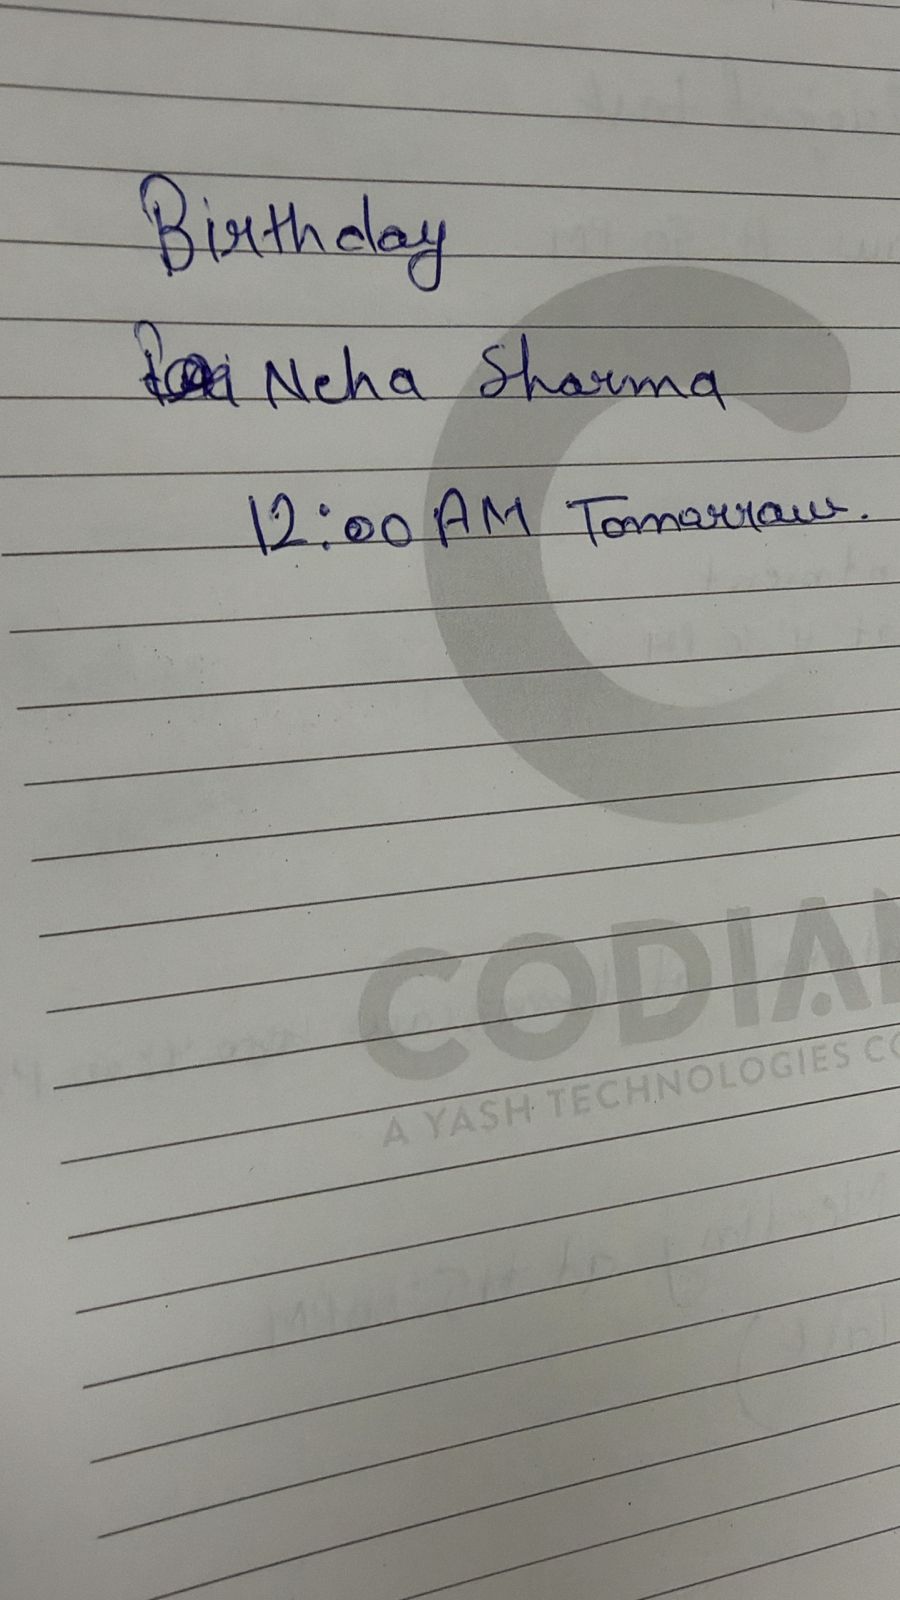 Birthday
Neha Sharma
12:00 AM Tomorrow.
CODIAN
A YASH TECHNOLOGIES CO